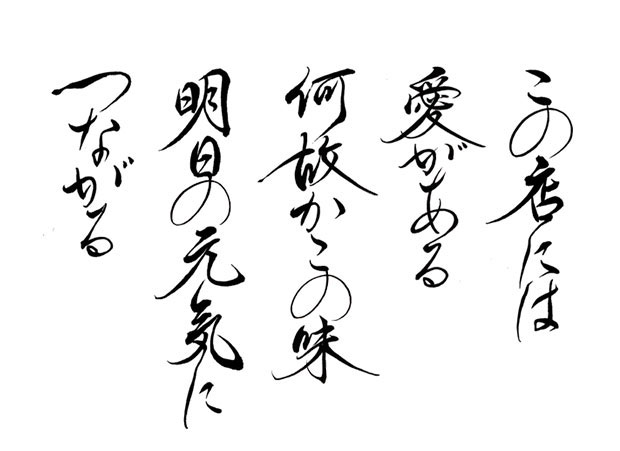 この店には
愛がある
何故かこの味
明日の元気に
つながる